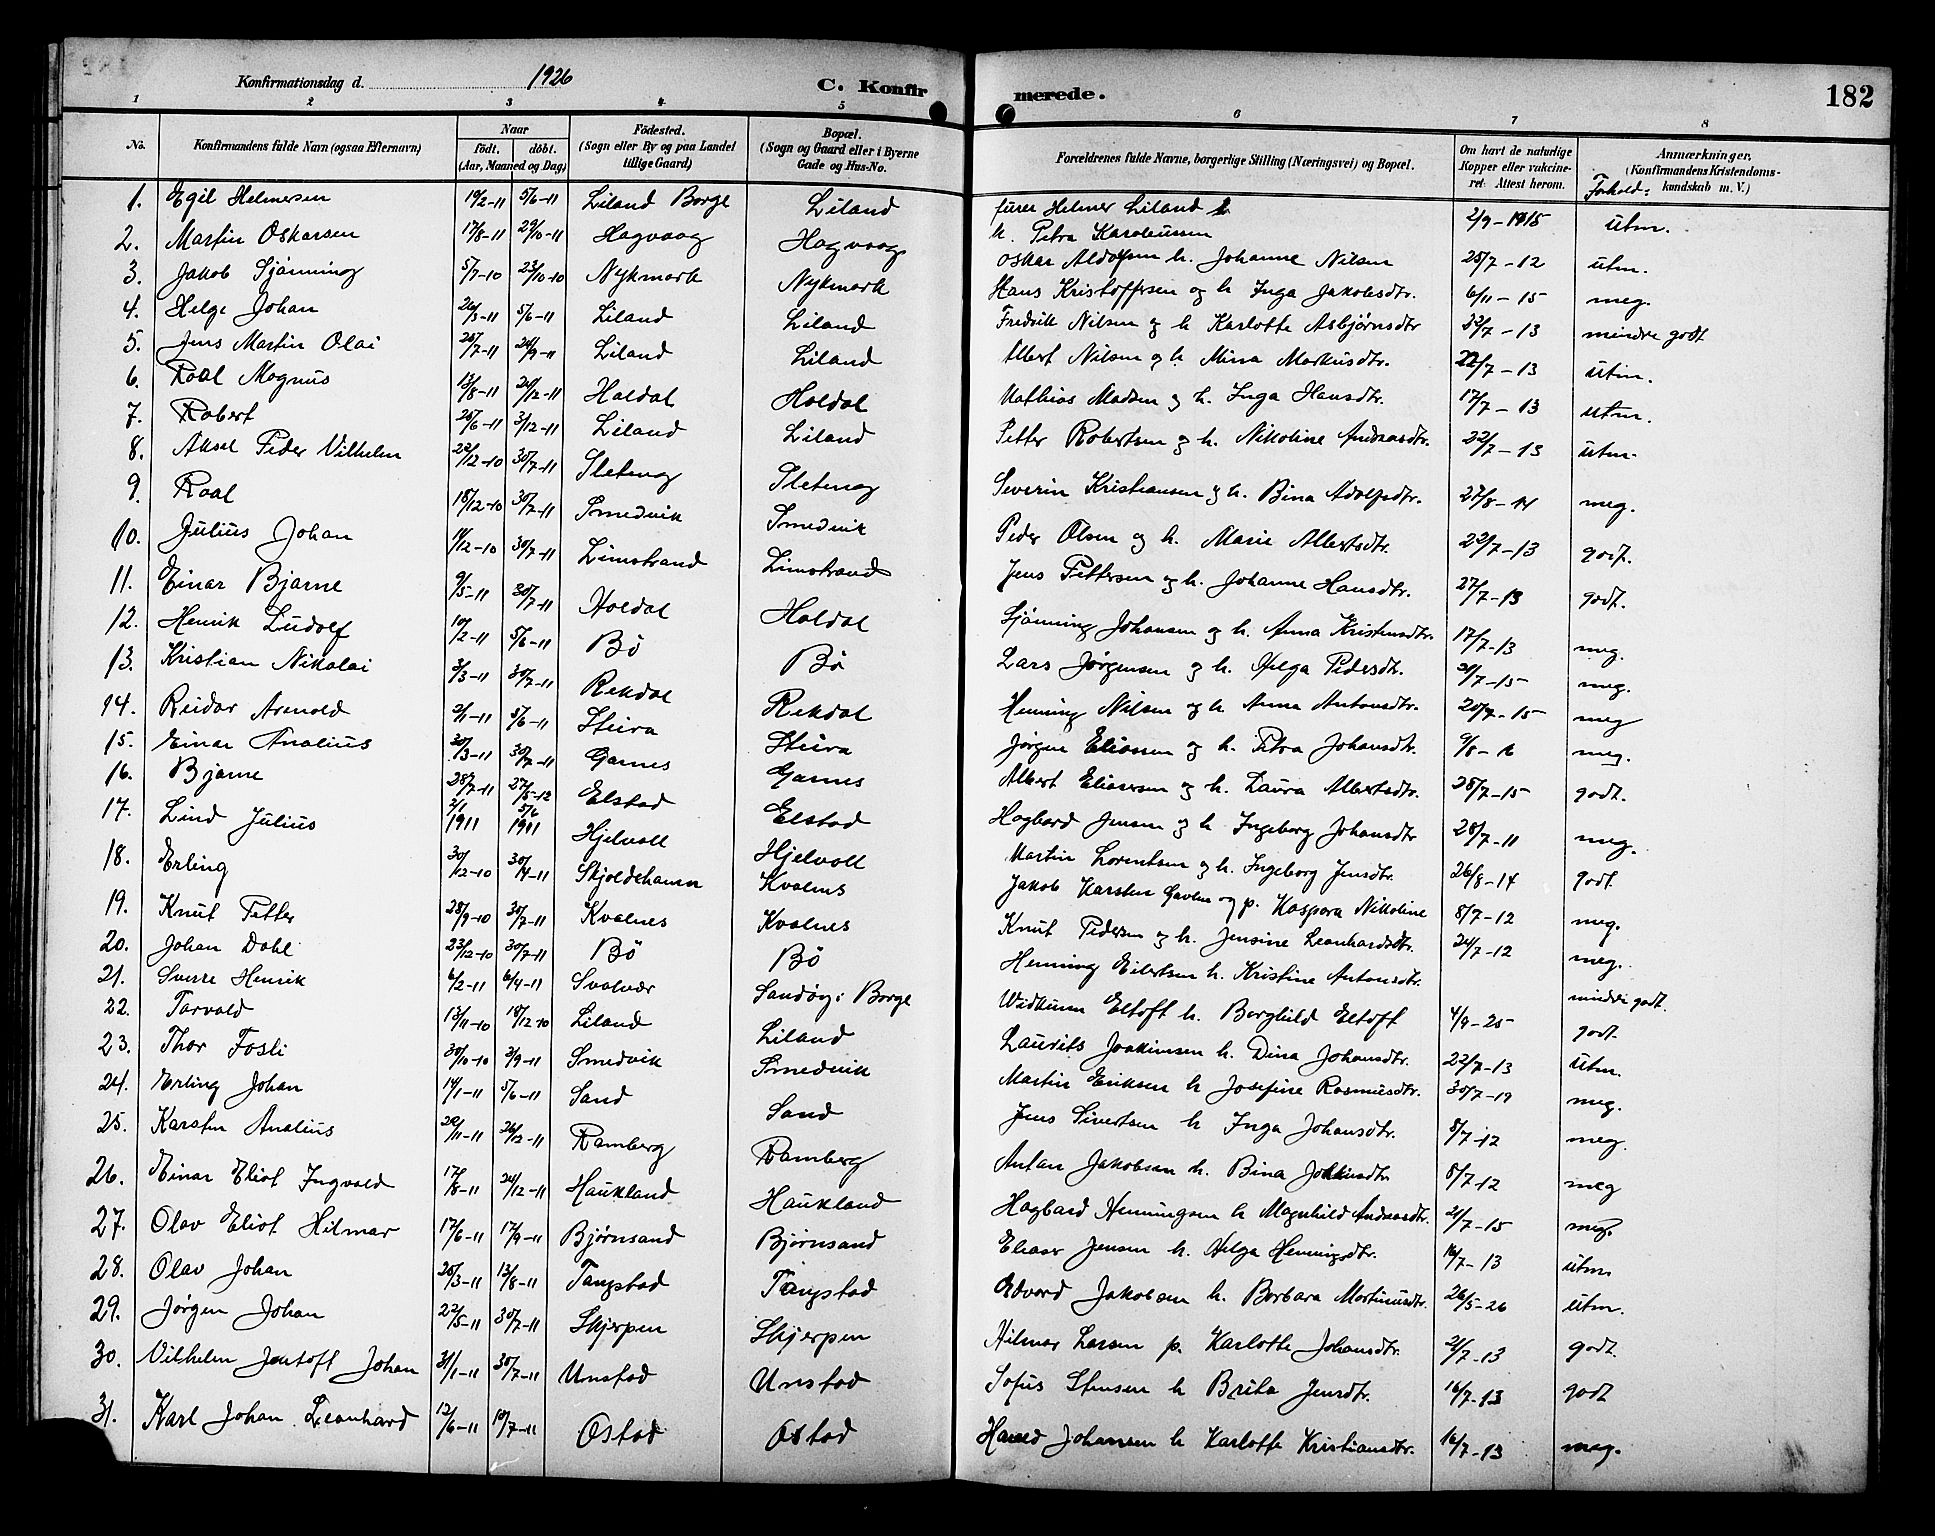 Konfirmationsdag d. 1926
C. Konfir
merede.
182
1 2 3 4 5 6 7 8
No.
Konfirmandens fulde Navn (ogsaa Efternavn)
Naar
födt. döbt.
(Aar, Maaned og Dag)
Födested.
(Sogn eller By og paa Landet
tillige Gaard)
Bopæl.
(Sogn og Gaard eller i Byerne
Gade og Hus-No.
Forældrenes fulde Navne, borgerlige Stilling (Næringsvei) og Bopæl.
Om havt de naturlige
Kopper eller vakcine-
ret. Attest herom.
Anmærkninger.
(Konfirmandens Kristendoms-
kundskab m. V.)
Forhold:
1. Egil Helmersen 19/2-11 5/6-11 Liland Borge Liland Helmer Liland h. Petra 2/9-1915 utm.
2. Martin Oskarsen 17/8-11 29/10-11 Hagvaag Hagvaag Oskar Adolfsen h. Johanne Nilsen 25/7-12 utm.
3. Jakob Sjønning 5/7-10 23/10-10 Nykmark Nykmark Hans Kristoffersen og h Inga Jakobsdtr. 6/11-15 meg.
4. Helge Johan 26/3-11 5/6-11 Liland Liland Fredrik Nilsen og h Karlotte Asbjørnsdtr 22/7-13 mindre godt
5. Jens Martin Olai 25/7-11 24/9-11 Liland Liland Albert Nilsen og h. Mina Markusdtr. 22/7-13 utm.
6. Roal Magnus 13/8-11 24/12-11 Holdal Holdal Mathias Madsen og h. Inga Hansdtr. 17/7-13 utm.
7. Robert 20/6-11 3/12-11 Liland Liland Petter Robertsen og h. Nikoline Andreasdtr. 22/7-13 utm.
8. Aksel Peder Vilhelm 22/12-10 30/7-11 Sletteng Sletteng Severin Kristiansen og h. Bina Adolfsdtr. 27/8-14 meg.
9. Roal 18/12-10 30/7-11 Smedvik Smedvik Peder Olsen og h. Marie Albertsdtr. 22/7-13 godt.
10. Julius Johan 14/12-10 30/7-11 Limstrand Limstrand Jens Pettersen og h. Johanne Hansdtr. 27/7-13 godt.
11. Einar Bjarne 9/5-11 30/7-11 Holdal Holdal Sjønning Johansen og h. Anna Kristensdtr. 17/7-13 meg.
12. Henrik Ludolf 10/2-11 5/6-11 Bö Bö Lars Jørgensen og h. Helga Pedersdtr. 21/7-15 meg.
13. Kristian Nikolai 3/3-11 30/7-11 Rekdal Rekdal Henning Nilsen og h Anna Antonsdtr. 20/7-15 meg
14. Reidar Arnold 2/1-11 5/6-11 Steira Steira Jørgen Eliassen og h. Petra Johansdtr. 9/8-16 meg.
15. Einar Analius 30/3-11 30/7-11 Garnes Garnes Albert Eliassen og h. Laura Albertsdtr. 28/7-15 godt.
16. Bjarne 28/7-11 27/5-12 Elstad Elstad Hagbard Jensen og h Ingeborg Johansdtr 28/7-11 meg.
17. Lind Julius 2/1 1911 5/6 1911 Hjelvoll Hjelvoll Martin Lorentsen og h. Ingeborg Jensdtr. 26/8-14 godt.
18. Erling 30/12-10 30/4-11 Skjoldehamn Kvalnes Jakob Karsten og p. Kaspara Nikoline 8/7-12 meg.
19. Knut Petter 28/9-10 30/7-11 Kvalnes Kvalnes Knut Pedersen og h. Jensine Leonhardsdtr. 24/7-12 meg.
20. Johan Dahl 23/12-10 30/7-11 Bö Bö Henning Eilertsen h. Kristine Antonsdtr. mindre godt.
21. Sverre Henrik 6/2-11 6/4-11 Svolvær Sandöy i Borge Eltoft h. Borghild Eltoft 4/9-25 godt.
22. Torvald 13/11-10 18/12-10 Liland Liland Laurits Joakimsen h. Dina Johansdtr. 22/7-13 utm.
23. Thor Fosli 30/10-10 3/9-11 Smedvik Smedvik Martin Eriksen h Josefine Rasmusdtr. 30/7-19 meg.
24. Erling Johan 14/1-11 5/6-11 Sand Sand Jens Sivertsen h Inga Johansdtr. 8/7-12 meg.
25. Karsten Analius 29/11-11 26/12-11 Ramberg Ramberg Antan Jakobsen h. Bina 8/7-12 meg
26. Einar Eliot Ingvald 17/8-11 24/12-11 Haukland Haukland Hagbard Henningsen h Magnhild Andreasdtr. 21/7-15 meg.
27. Olav Eliot Hilmar 17/6-11 17/9-11 Bjørnsand Bjørnsand Eliaser Jensen h. Helga Henningsdtr. 16/7-13 utm
28. Olav Johan 20/3-11 13/8-11 Tangstad Tangstad Edvard Jakobsen h. Borbara Martinusdtr. 26/5-26 utm.
29. Jørgen Johan 22/5-11 30/7-11 Skjerpen Skjerpen Hilmar Larsen p. Karlotte Johansdtr. 21/7-13 godt.
30. Vilhelm Jentoft Johan 31/1-11 30/7-11 Unstad Unstad Sofus Stensen h Brita Jensdtr. 16/7-13 godt
31. Karl Johan Leonhard 12/6-11 10/7-11 Ostad Ostad Johansen h Karlotte Kristiansdtr. 16/7-13 meg.